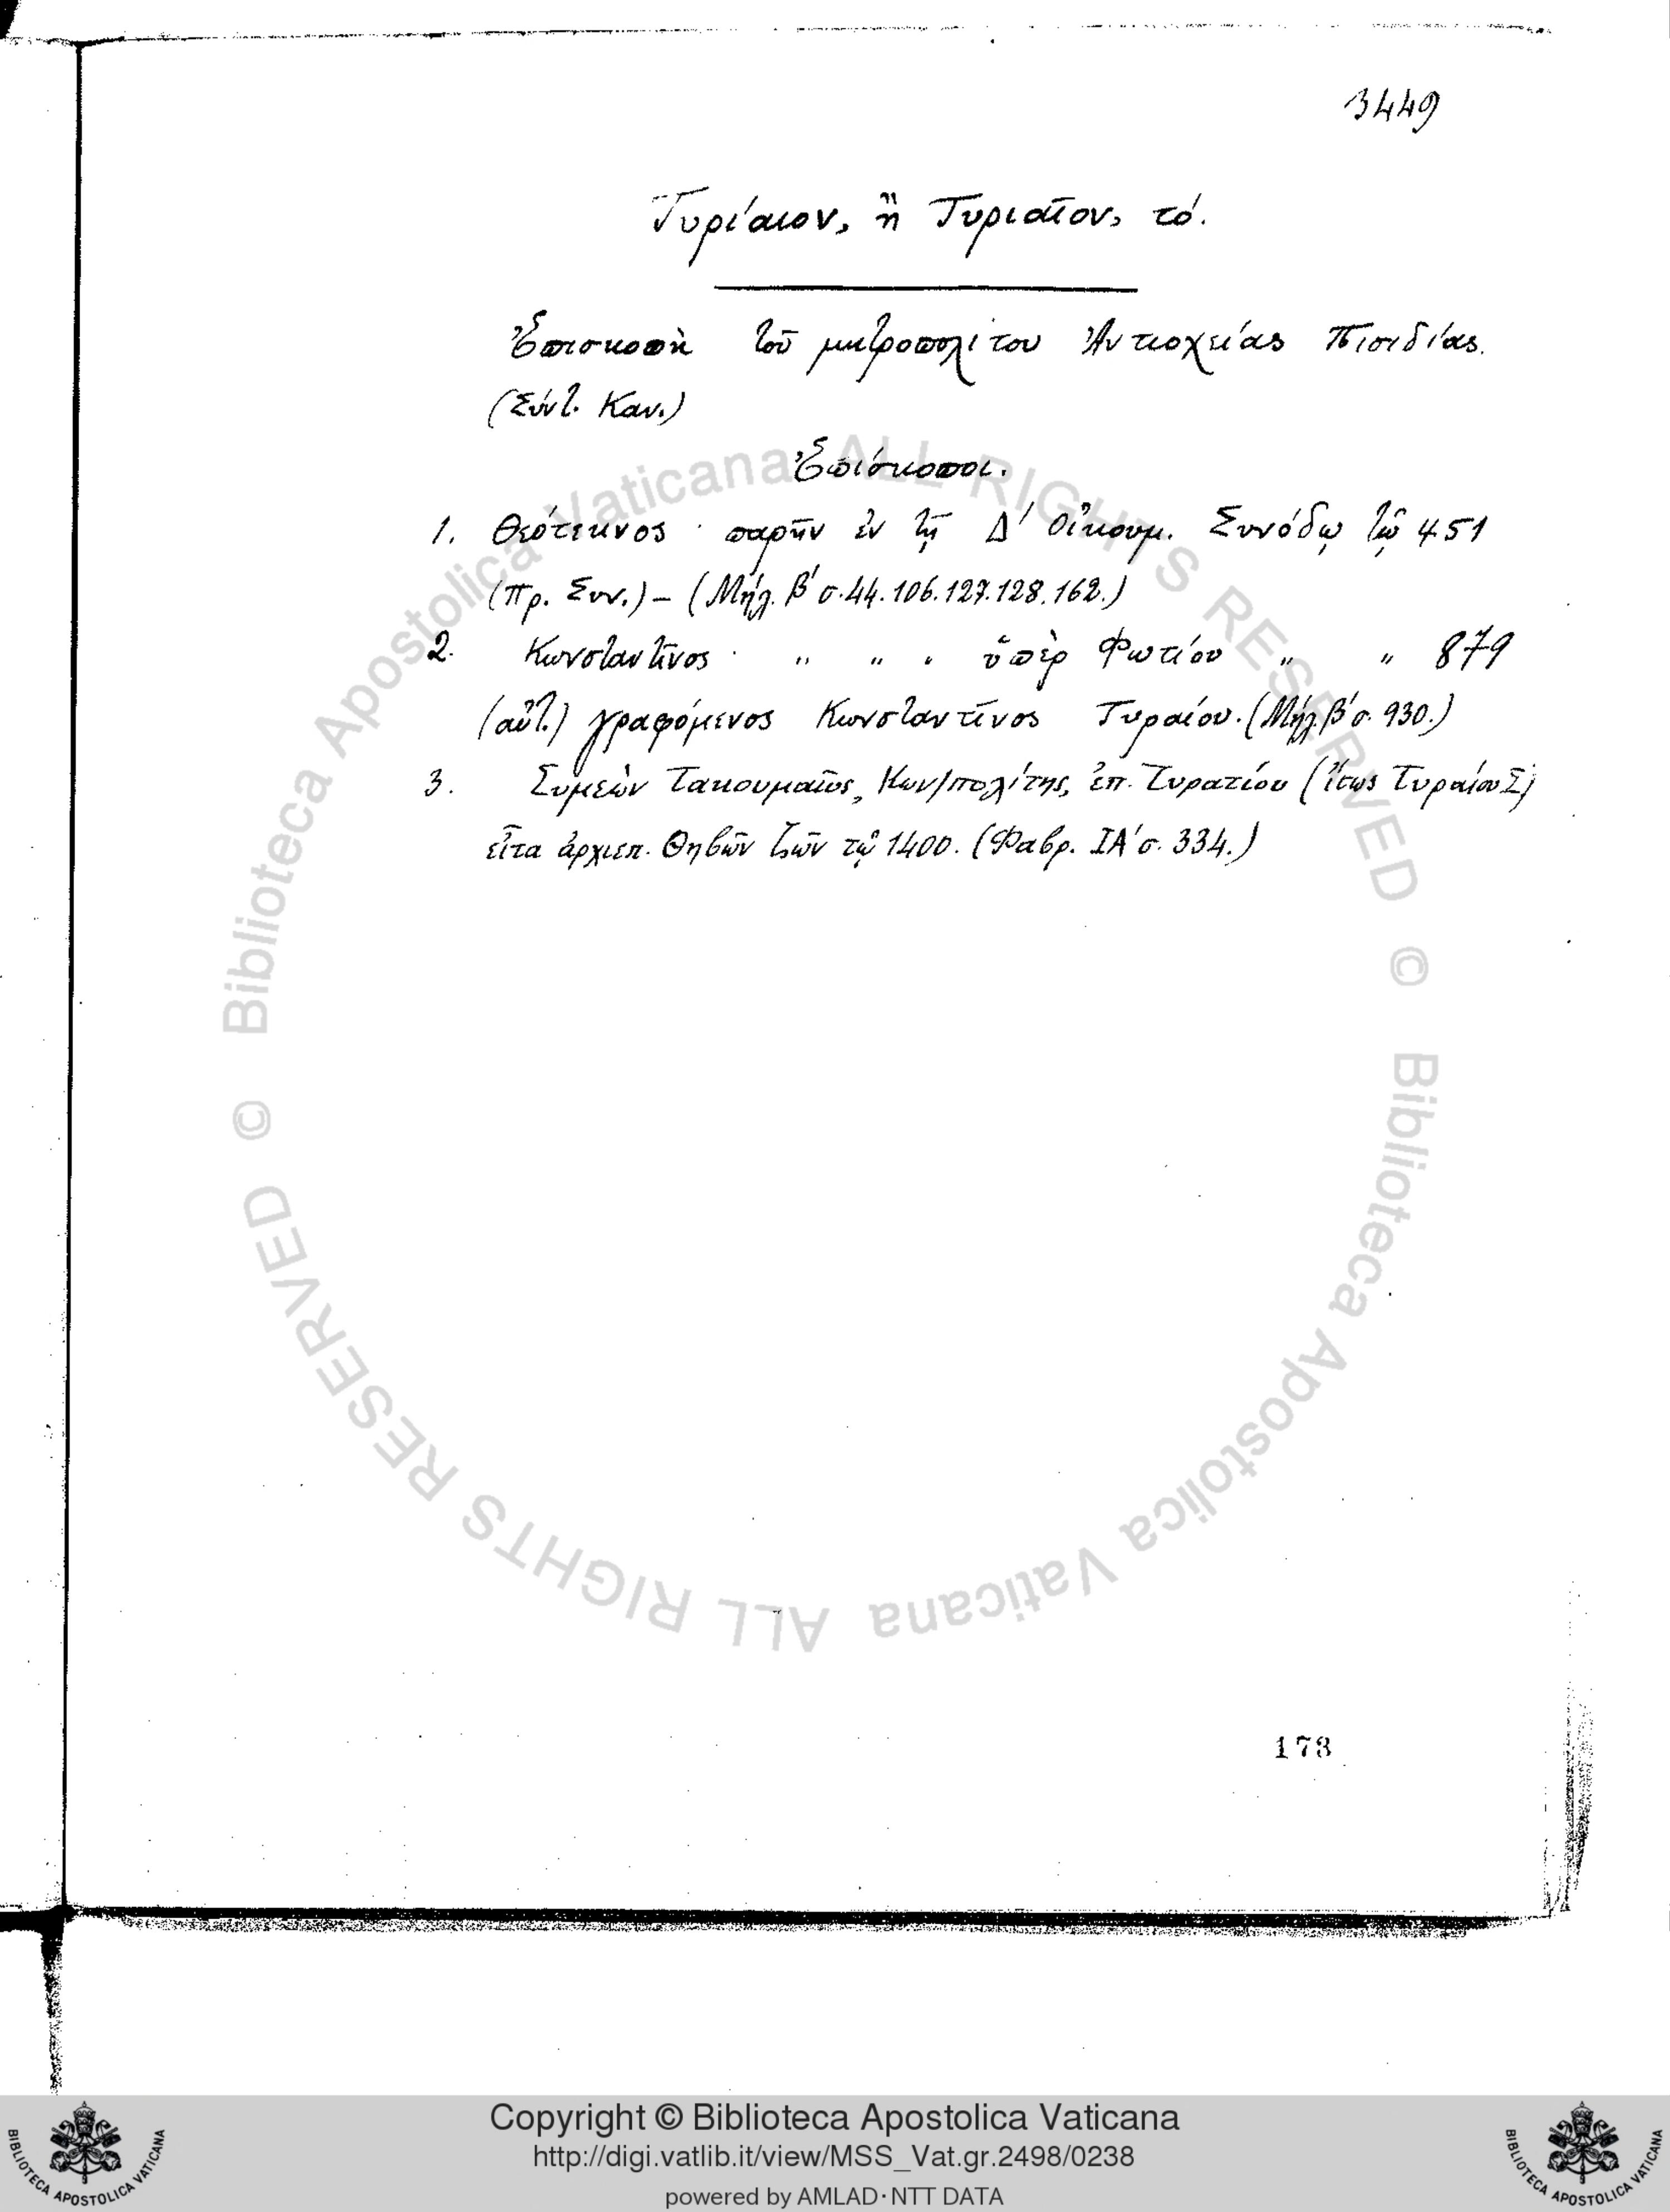 3449
Τυρίαιον, ἢ Τυριαῖον, τό.
Ἐπισκοπὴ τοῦ μητροπολίτου Ἀντιοχείας Πισιδίας.
(Σύντ. Καν.)
Ἐπίσκοποι.
1. Θεότεκνος · παρῆν ἐν τῇ Δ' Οἰκουμ. Συνόδῳ τῷ 451
(Πρ. Συν.) – (Μήλ. β' σ. 44. 106. 127. 128. 162.)
2. Κωνσταντῖνος · " " " ὑπὲρ Φωτίου " " 879
(αὐτ.) γραφόμενος Κωνσταντῖνος Τυραίου. (Μήλ. β' σ. 930.)
3. Συμεὼν Τακουμαῖος, Κων/πολίτης, ἐπ. Τυρατίου (ἴσως Τυραίου Σ)
εἶτα ἀρχιεπ. Θηβῶν ζῶν τῷ 1400. (Φαβρ. ΙΑ' σ. 334.)
178
© Biblioteca Apostolica Vaticana ALL RIGHTS RESERVED
© Biblioteca Apostolica Vaticana ALL RIGHTS RESERVED
Copyright © Biblioteca Apostolica Vaticana
http://digi.vatlib.it/view/MSS_Vat.gr.2498/0238
powered by AMLAD·NTT DATA
BIBLIOTECA APOSTOLICA VATICANA
BIBLIOTECA APOSTOLICA VATICANA